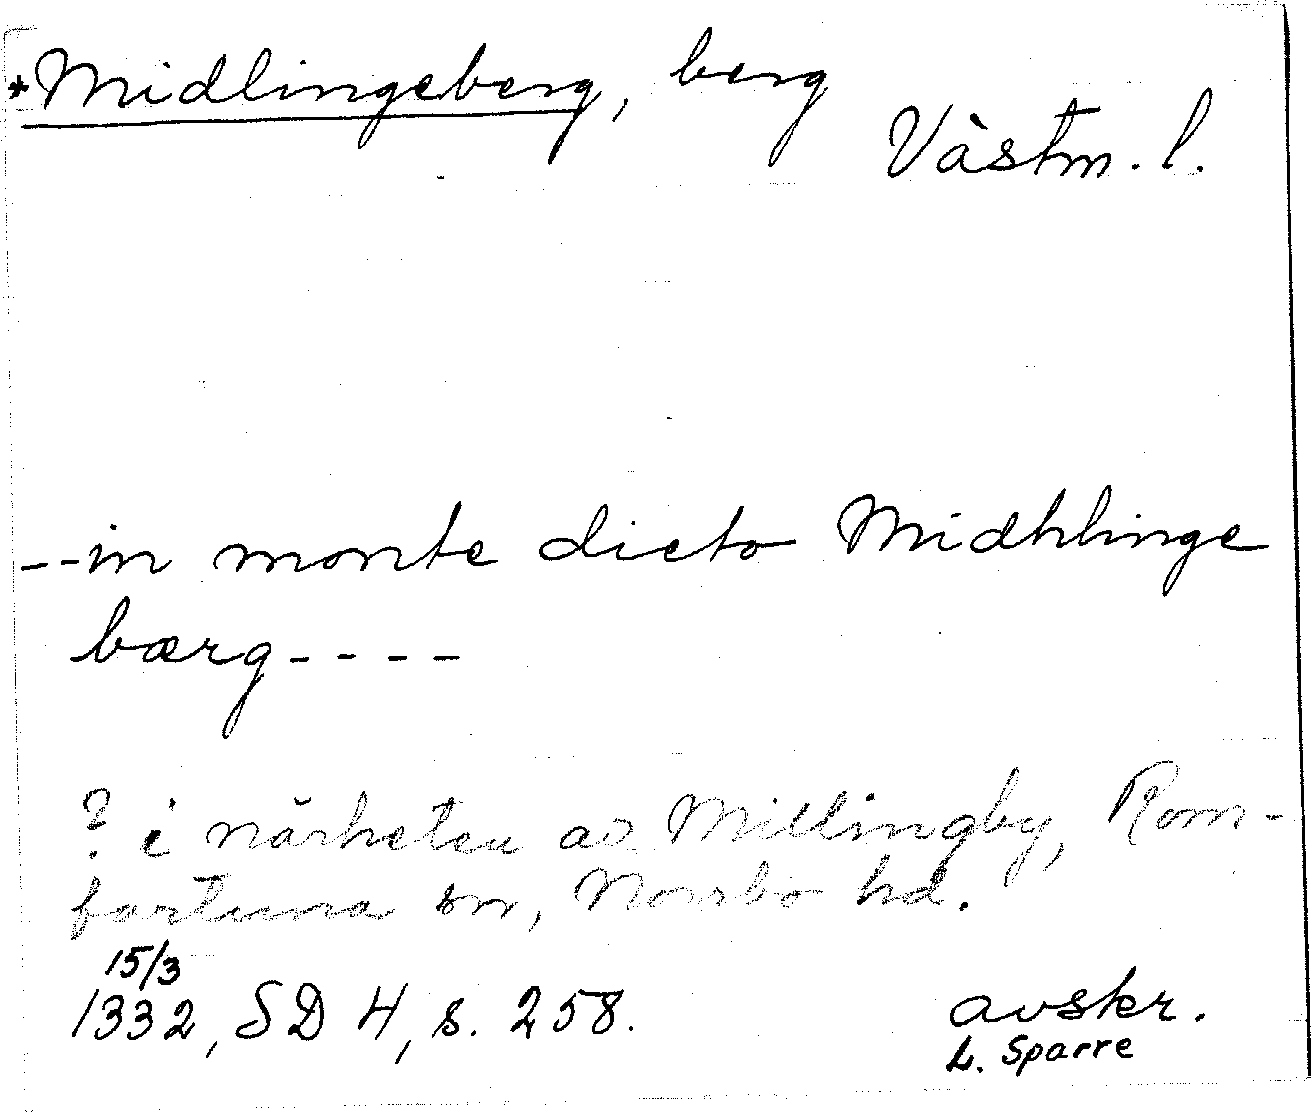 *Midlingeberg, berg
Västm. l.
--in monte dicto Midhlinge
bærg----
? i närheten av Millingby, Rom-
fartuna sn, Norrbo hd.
15/3
1332, SD 4, s. 258.
avskr.
L. Sparre